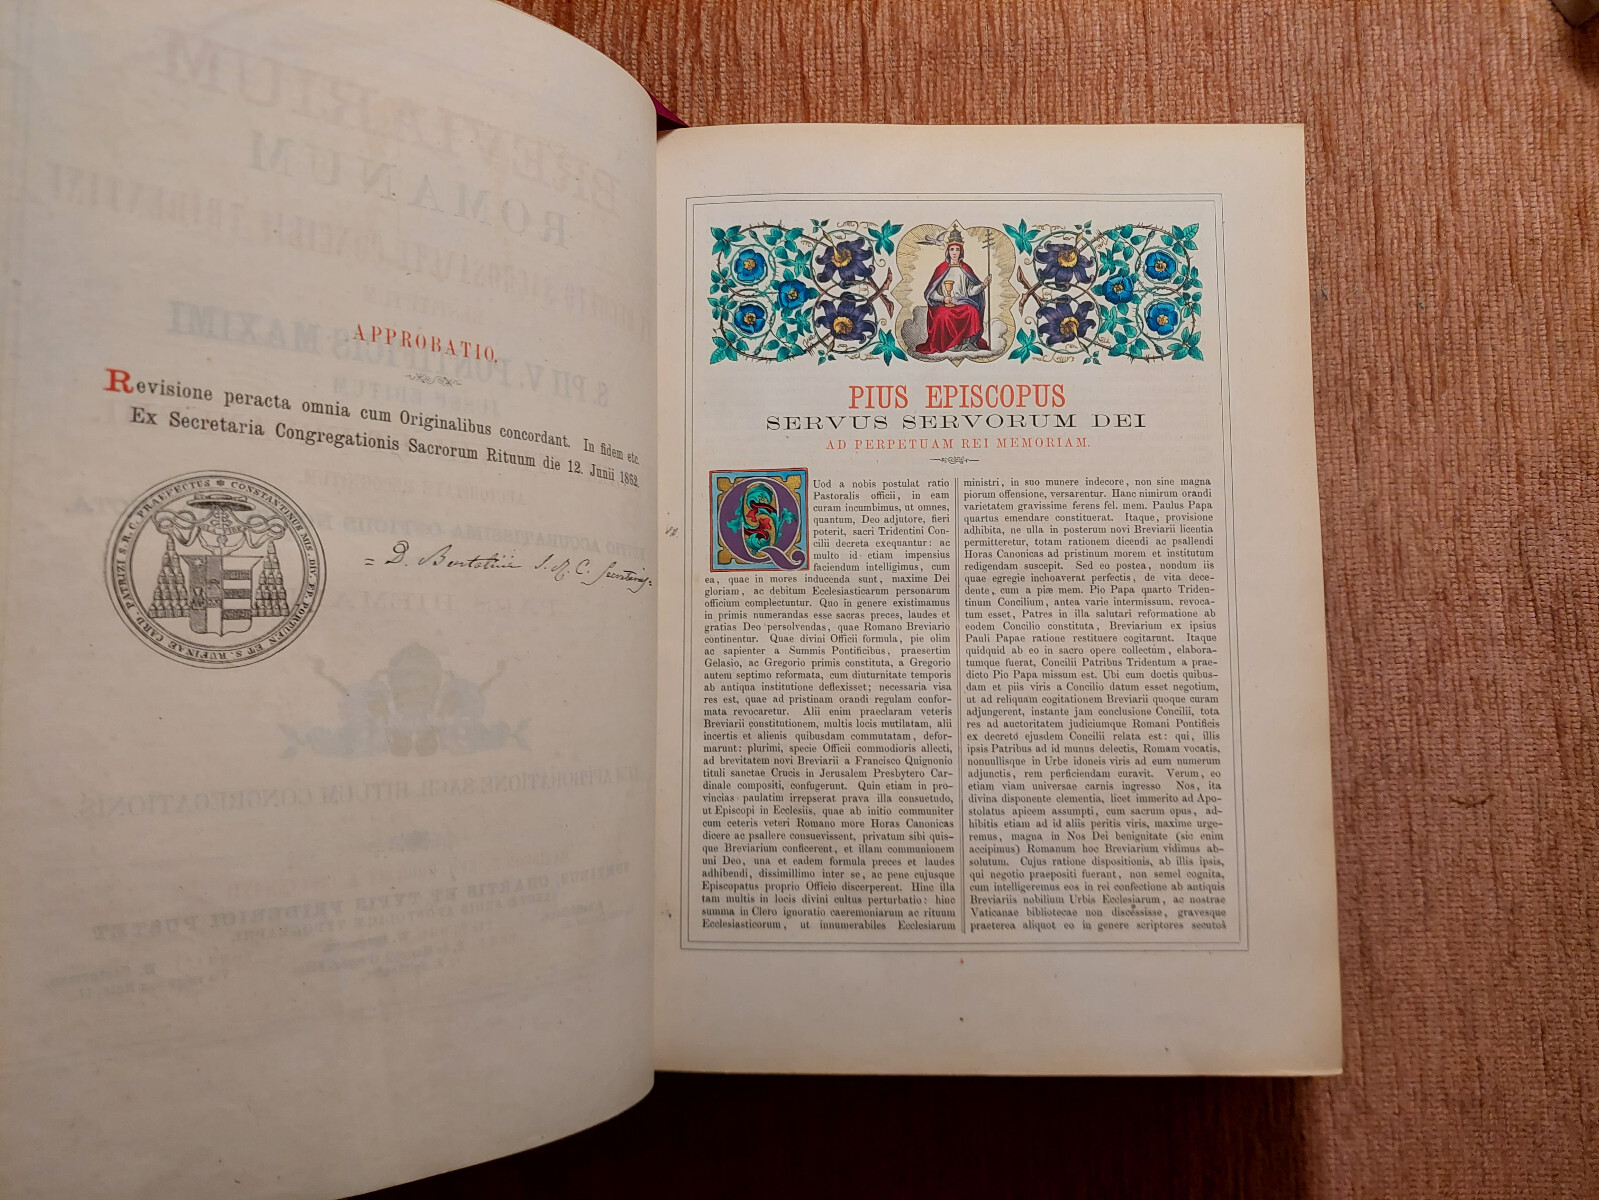 APPROBATIO.
Revisione peracta omnia cum Originalibus concordant. In fidem etc.
Ex Secretaria Congregationis Sacrorum Rituum die 12. Junii 1862.
CONSTANTINUS MIS. DIV. EP. PORTUEN ET S. RUFINAE CARD. PATRIZI S. R. C. PRAEFECTUS
= D. Bartolini S. R. C. Secretarius =
PIUS EPISCOPUS
SERVUS SERVORUM DEI
AD PERPETUAM REI MEMORIAM.
QUod a nobis postulat ratio
Pastoralis officii, in eam
curam incumbimus, ut omnes,
quantum, Deo adjutore, fieri
poterit, sacri Tridentini Con-
cilii decreta exequantur: ac
multo id etiam impensius
faciendum intelligimus, cum
ea, quae in mores inducenda sunt, maxime Dei
gloriam, ac debitum Ecclesiasticarum personarum
officium complectuntur. Quo in genere existimamus
in primis numerandas esse sacras preces, laudes et
gratias Deo persolvendas, quae Romano Breviario
continentur. Quae divini Officii formula, pie olim
ac sapienter a Summis Pontificibus, praesertim
Gelasio, ac Gregorio primis constituta, a Gregorio
autem septimo reformata, cum diuturnitate temporis
ab antiqua institutione deflexisset; necessaria visa
res est, quae ad pristinam orandi regulam confor-
mata revocaretur. Alii enim praeclaram veteris
Breviarii constitutionem, multis locis mutilatam, alii
incertis et alienis quibusdam commutatam, defor-
marunt: plurimi, specie Officii commodioris allecti,
ad brevitatem novi Breviarii a Francisco Quignonio
tituli sanctae Crucis in Jerusalem Presbytero Car-
dinale compositi, confugerunt. Quin etiam in pro-
vincias paulatim irrepserat prava illa consuetudo,
ut Episcopi in Ecclesiis, quae ab initio communiter
cum ceteris veteri Romano more Horas Canonicas
dicere ac psallere consuevissent, privatum sibi quis-
que Breviarium conficerent, et illam communionem
uni Deo, una et eadem formula preces et laudes
adhibendi, dissimillimo inter se, ac pene cujusque
Episcopatus proprio Officio discerperent. Hinc illa
tam multis in locis divini cultus perturbatio: hinc
summa in Clero ignoratio caeremoniarum ac rituum
Ecclesiasticorum, ut innumerabiles Ecclesiarum
ministri, in suo munere indecore, non sine magna
piorum offensione, versarentur. Hanc nimirum orandi
varietatem gravissime ferens fel. mem. Paulus Papa
quartus emendare constituerat. Itaque, provisione
adhibita, ne ulla in posterum novi Breviarii licentia
permitteretur, totam rationem dicendi ac psallendi
Horas Canonicas ad pristinum morem et institutum
redigendam suscepit. Sed eo postea, nondum iis
quae egregie inchoaverat perfectis, de vita dece-
dente, cum a piæ mem. Pio Papa quarto Triden-
tinum Concilium, antea varie intermissum, revoca-
tum esset, Patres in illa salutari reformatione ab
eodem Concilio constituta, Breviarium ex ipsius
Pauli Papae ratione restituere cogitarunt. Itaque
quidquid ab eo in sacro opere collectum, elabora-
tumque fuerat, Concilii Patribus Tridentum a prae-
dicto Pio Papa missum est. Ubi cum doctis quibus-
dam et piis viris a Concilio datum esset negotium,
ut ad reliquam cogitationem Breviarii quoque curam
adjungerent, instante jam conclusione Concilii, tota
res ad auctoritatem judiciumque Romani Pontificis
ex decreto ejusdem Concilii relata est: qui, illis
ipsis Patribus ad id munus delectis, Romam vocatis,
nonnullisque in Urbe idoneis viris ad eum numerum
adjunctis, rem perficiendam curavit. Verum, eo
etiam viam universae carnis ingresso Nos, ita
divina disponente clementia, licet immerito ad Apo-
stolatus apicem assumpti, cum sacrum opus, ad-
hibitis etiam ad id aliis peritis viris, maxime urge-
remus, magna in Nos Dei benignitate (sic enim
accipimus) Romanum hoc Breviarium vidimus ab-
solutum. Cujus ratione dispositionis, ab illis ipsis,
qui negotio praepositi fuerant, non semel cognita,
cum intelligeremus eos in rei confectione ab antiquis
Breviariis nobilium Urbis Ecclesiarum, ac nostrae
Vaticanae bibliotecae non discessisse, gravesque
praeterea aliquot eo in genere scriptores secutos